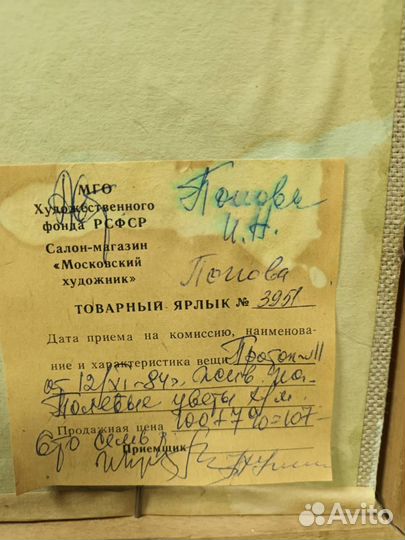 МГО
Художественного
фонда РСФСР
Салон-магазин
«Московский
художник»
Попова
И.Н.
Попова
ТОВАРНЫЙ ЯРЛЫК № 3951
Дата приема на комиссию, наименова-
ние и характеристика вещи Протокол
от 12/XI-84г.
Полевые цветы х/м.
Продажная цена 100+7%=107-
Сто семь р.
Приемщик
Avito